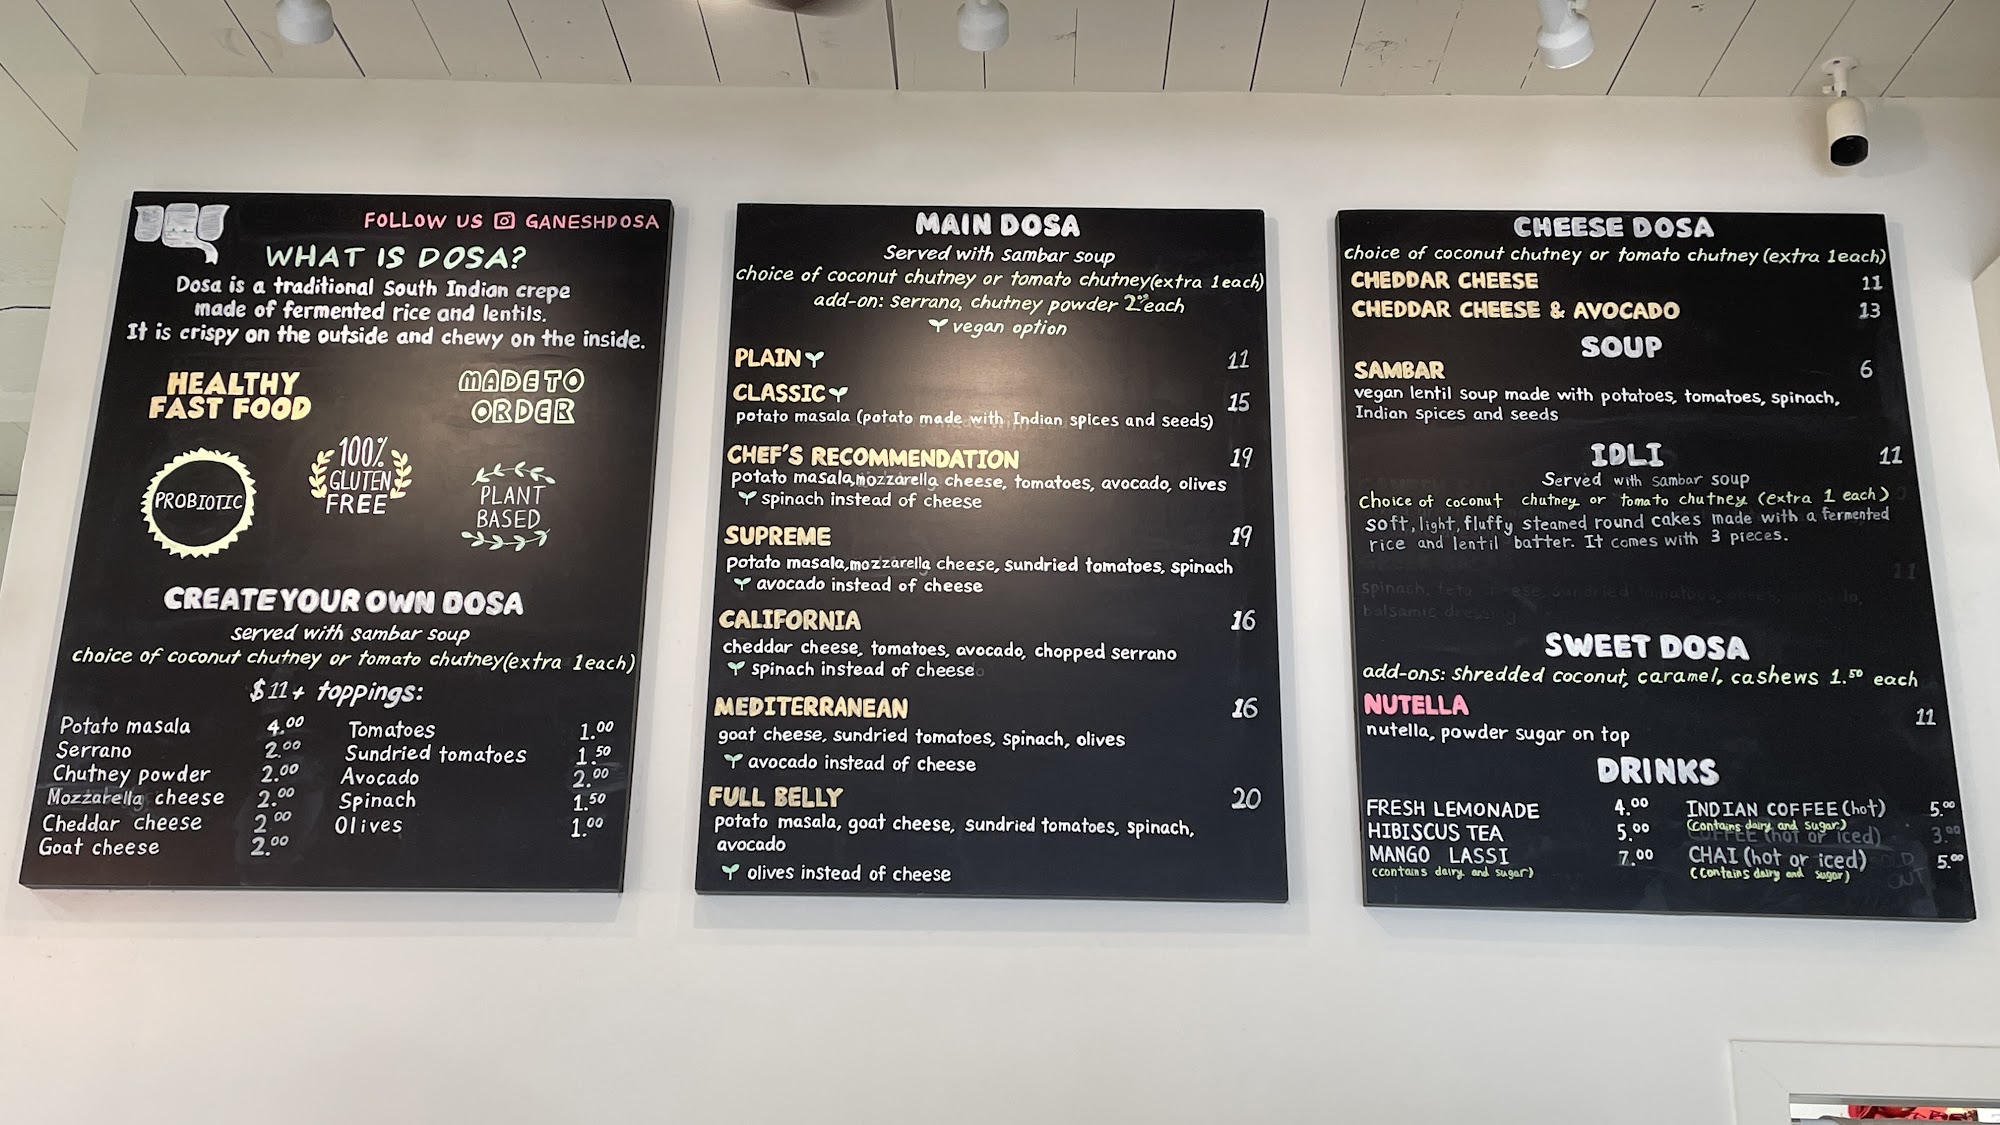 FOLLOW US GANESHDOSA
WHAT IS DOSA?
Dosa is a traditional South Indian crepe
made of fermented rice and lentils.
It is crispy on the outside and chewy on the inside.
HEALTHY
FAST FOOD
MADE TO
ORDER
PROBIOTIC
100%
GLUTEN
FREE
PLANT
BASED
CREATE YOUR OWN DOSA
served with sambar soup
choice of coconut chutney or tomato chutney(extra 1each)
$11+ toppings:
Potato masala 4.00 Tomatoes 1.00
Serrano 2.00 Sundried tomatoes 1.50
Chutney powder 2.00 Avocado 2.00
Mozzarella cheese 2.00 Spinach 1.50
Cheddar cheese 2.00 Olives 1.00
Goat cheese 2.00
MAIN DOSA
Served with sambar soup
choice of coconut chutney or tomato chutney(extra 1each)
add-on: serrano, chutney powder 2.00 each
vegan option
PLAIN 11
CLASSIC 15
potato masala (potato made with Indian spices and seeds)
CHEF'S RECOMMENDATION 19
potato masala,mozzarella cheese, tomatoes, avocado, olives
spinach instead of cheese
SUPREME 19
potato masala,mozzarella cheese, sundried tomatoes, spinach
avocado instead of cheese
CALIFORNIA 16
cheddar cheese, tomatoes, avocado, chopped serrano
spinach instead of cheese
MEDITERRANEAN 16
goat cheese, sundried tomatoes, spinach, olives
avocado instead of cheese
FULL BELLY 20
potato masala, goat cheese, sundried tomatoes, spinach,
avocado
olives instead of cheese
CHEESE DOSA
choice of coconut chutney or tomato chutney (extra 1each)
CHEDDAR CHEESE 11
CHEDDAR CHEESE & AVOCADO 13
SOUP
SAMBAR 6
vegan lentil soup made with potatoes, tomatoes, spinach,
Indian spices and seeds
IDLI 11
Served with sambar soup
Choice of coconut chutney or tomato chutney (extra 1 each)
soft, light, fluffy steamed round cakes made with a fermented
rice and lentil batter. It comes with 3 pieces.
11
spinach, feta cheese, sundried tomatoes,
balsamic dressing
SWEET DOSA
add-ons: shredded coconut, caramel, cashews 1.50 each
NUTELLA 11
nutella, powder sugar on top
DRINKS
FRESH LEMONADE 4.00 INDIAN COFFEE (hot) 5.00
(contains dairy and sugar)
HIBISCUS TEA 5.00 COFFEE (hot or iced) 3.00
MANGO LASSI 7.00 CHAI (hot or iced) 5.00
(contains dairy and sugar) (contains dairy and sugar)